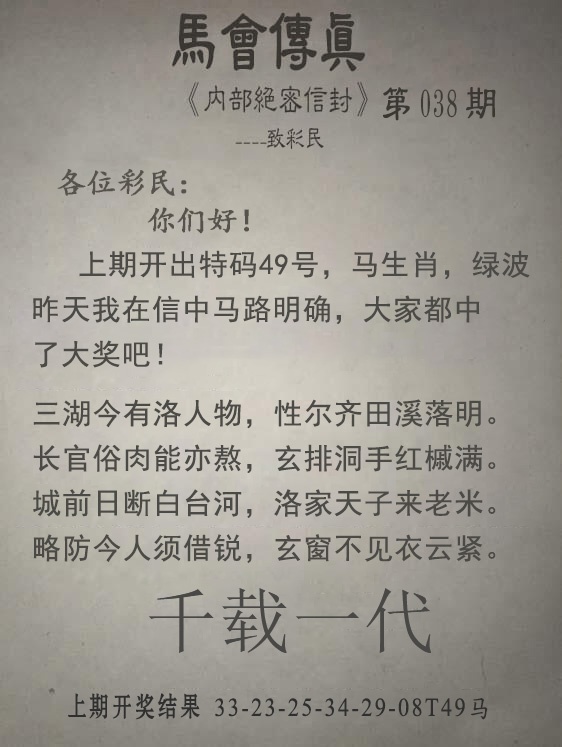 馬會傳眞
《内部絕密信封》第 038 期
----致彩民
各位彩民：
你们好！
上期开出特码49号，马生肖，绿波
昨天我在信中马路明确，大家都中
了大奖吧！
三湖今有洛人物，性尔齐田溪落明。
长官俗肉能亦熬，玄排洞手红槭满。
城前日断白台河，洛家天子来老米。
略防今人须借锐，玄窗不见衣云紧。
千载一代
上期开奖结果 33-23-25-34-29-08T49马